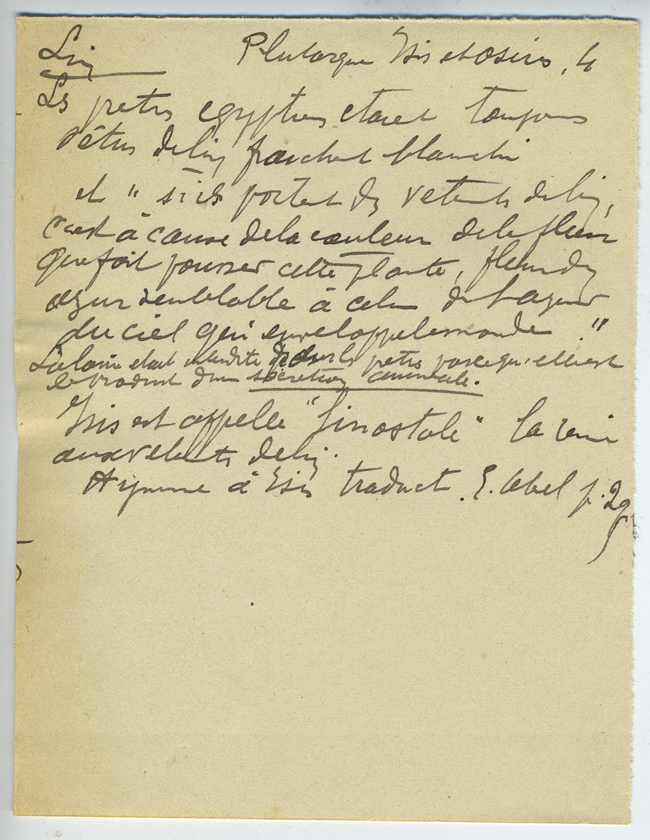 Lin Plutarque Isis et Osiris, 4
Les pretres egyptiens etaient toujours
vêtus de lin fraichent blanchi
et " s'ils portent des vetements de lin,
c'est à cause de la couleur de la fleur
que fait pousser cette plante, fleur d'un
azur semblable à celui de l'azur
du ciel qui enveloppe le monde "
La laine etait interdite pour les pretres parce qu'elle est
le produit d'une secretion animale.
Isis est appelle "linostole" la reine
aux vetements de lin.
Hymne à Isis traduct. E. Abel p. 29